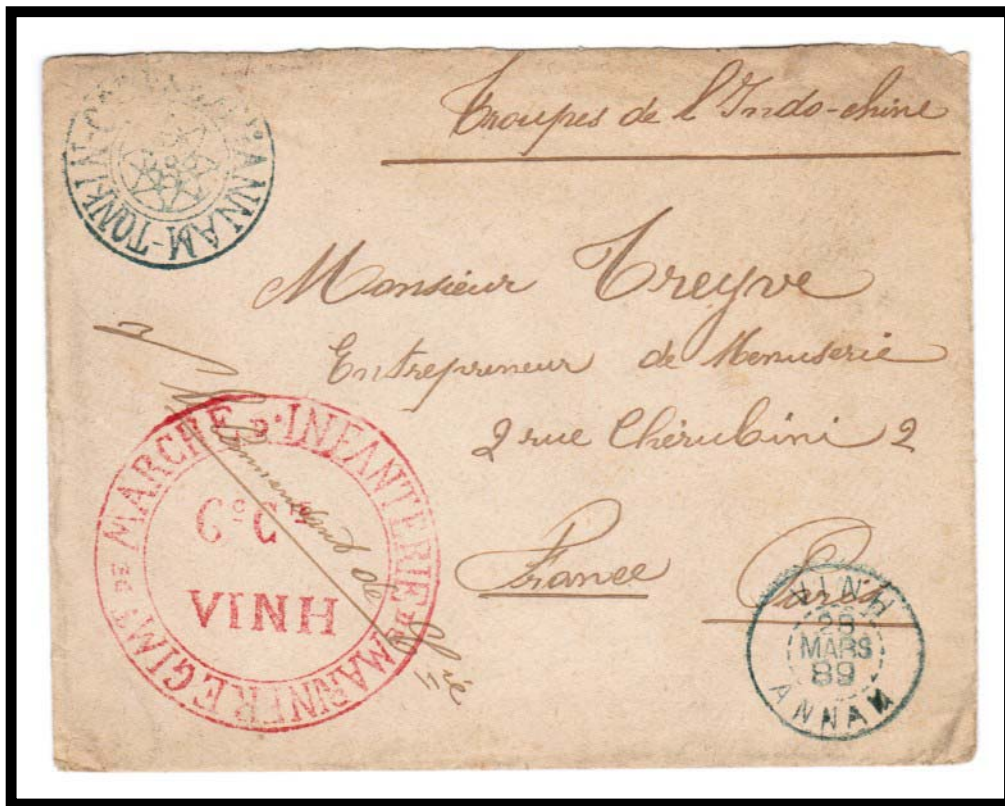 Troupes de l'Indo-chine
ANNAM-TONKIN
Monsieur Treyve
Entrepreneur de Menuserie
2 rue Chérubini 2
France Paris
REGIMT DE MARCHE D'INFANTERIE DE MARINE
6e Cie
VINH
Commandant
VINH
28
MARS
89
ANNAM